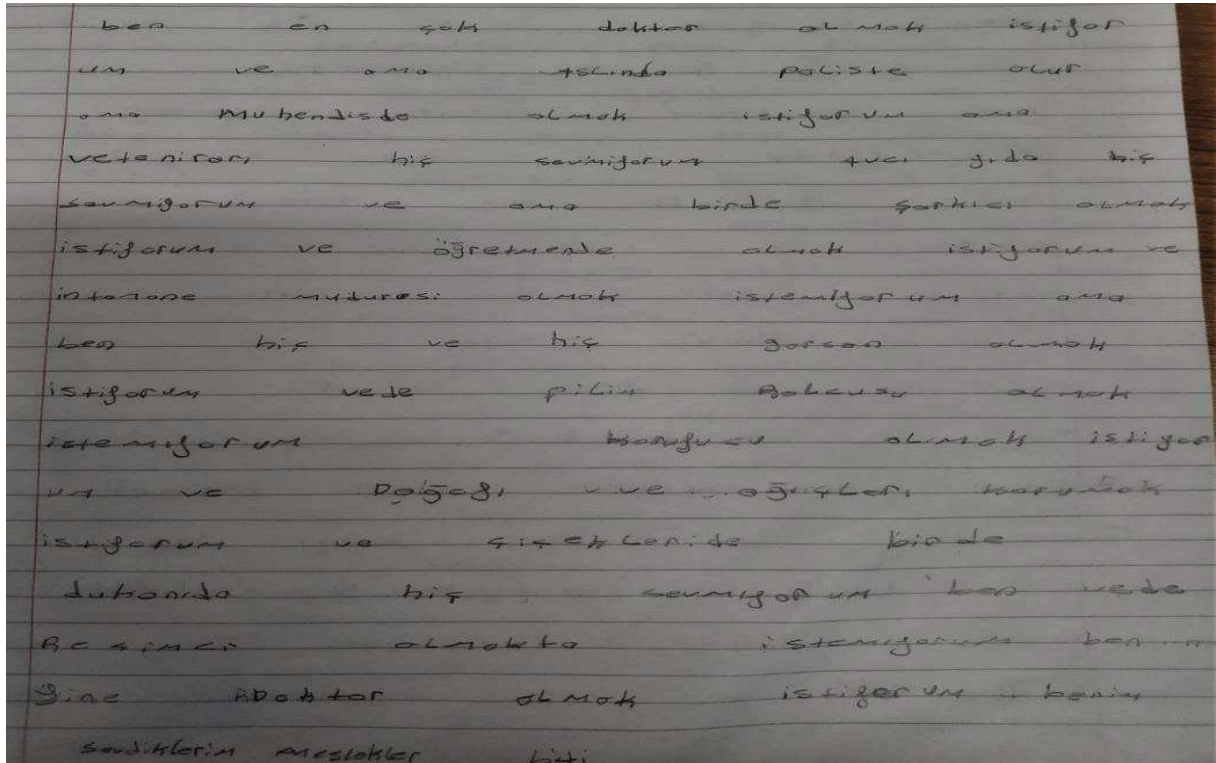 ben en çok doktor olmak istiyor
um ve ama aslında poliste olur
ama muhendisde olmak istiyorum ama
vetenirarı hiç sevmiyorum avcı yıda hiç
sevmiyorum ve ama birde şarkıcı olmak
istiyorum ve öğretmende olmak istiyorum ve
intanane muduresi olmak istemiyorum ama
ben hiç ve hiç garson olmak
istiyorum vede pilim olmak
istemiyorum koruyucu olmak istiyor
um ve Doğayı ve ağaçları korumak
istiyorum ve çiçekleride birde
dukanıda hiç sevmiyorum ben vede
Resimci olmakta istemiyorum ben
yine Doktor olmak istiyorum benim
sevdiklerim meslekler bitti